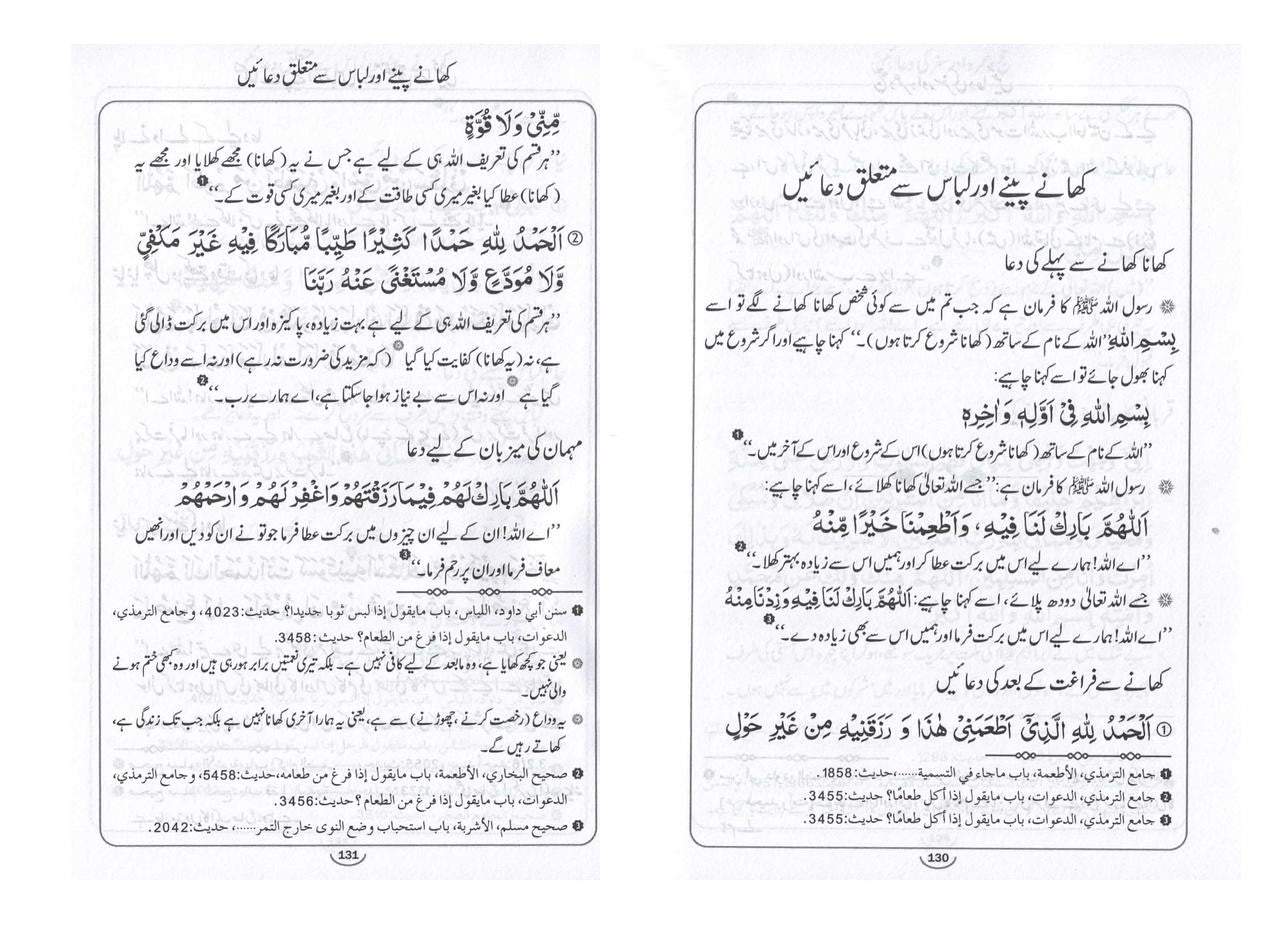 کھانے پینے اور لباس سے متعلق دعائیں
کھانا کھانے سے پہلے کی دعا
رسول اللہ ﷺ کا فرمان ہے کہ جب تم میں سے کوئی شخص کھانا کھانے لگے تو اسے
بِسْمِ اللّٰهِ ’’اللہ کے نام کے ساتھ (کھانا شروع کرتا ہوں)۔‘‘ کہنا چاہیے اور اگر شروع میں
کہنا بھول جائے تو اسے کہنا چاہیے:
بِسْمِ اللّٰهِ فِیْ اَوَّلِهٖ وَاٰخِرِهٖ
’’اللہ کے نام کے ساتھ (کھانا شروع کرتا ہوں) اس کے شروع اور اس کے آخر میں۔‘‘❶
رسول اللہ ﷺ کا فرمان ہے: ’’جسے اللہ تعالیٰ کھانا کھلائے، اسے کہنا چاہیے:
اَللّٰهُمَّ بَارِكْ لَنَا فِیْهِ، وَاَطْعِمْنَا خَیْرًا مِّنْهُ
’’اے اللہ! ہمارے لیے اس میں برکت عطا کر اور ہمیں اس سے زیادہ بہتر کھلا۔‘‘❷
جسے اللہ تعالیٰ دودھ پلائے، اسے کہنا چاہیے: اَللّٰهُمَّ بَارِكْ لَنَا فِیْهِ وَزِدْنَا مِنْهُ
’’اے اللہ! ہمارے لیے اس میں برکت فرما اور ہمیں اس سے بھی زیادہ دے۔‘‘❸
کھانے سے فراغت کے بعد کی دعائیں
① اَلْحَمْدُ لِلّٰهِ الَّذِیْٓ اَطْعَمَنِیْ هٰذَا وَ رَزَقَنِیْهِ مِنْ غَیْرِ حَوْلٍ
❶ جامع الترمذي، الأطعمة، باب ماجاء في التسمية......، حديث:1858.
❷ جامع الترمذي، الدعوات، باب مايقول إذا أكل طعامًا؟ حديث:3455.
❸ جامع الترمذي، الدعوات، باب مايقول إذا أكل طعامًا؟ حديث:3455.
130
کھانے پینے اور لباس سے متعلق دعائیں
مِّنِّیْ وَلَا قُوَّةٍ
’’ہر قسم کی تعریف اللہ ہی کے لیے ہے جس نے یہ (کھانا) مجھے کھلایا اور مجھے یہ
(کھانا) عطا کیا بغیر میری کسی طاقت کے اور بغیر میری کسی قوت کے۔‘‘❶
② اَلْحَمْدُ لِلّٰهِ حَمْدًا كَثِیْرًا طَیِّبًا مُّبَارَكًا فِیْهِ غَیْرَ مَكْفِیٍّ
وَّلَا مُوَدَّعٍ وَّلَا مُسْتَغْنًی عَنْهُ رَبَّنَا
’’ہر قسم کی تعریف اللہ ہی کے لیے ہے بہت زیادہ، پاکیزہ اور اس میں برکت ڈالی گئی
ہے، نہ (یہ کھانا) کفایت کیا گیا (کہ مزید کی ضرورت نہ رہے) اور نہ اسے وداع کیا
گیا ہے اور نہ اس سے بے نیاز ہوا جا سکتا ہے، اے ہمارے رب۔‘‘❷
مہمان کی میزبان کے لیے دعا
اَللّٰهُمَّ بَارِكْ لَهُمْ فِیْمَا رَزَقْتَهُمْ وَاغْفِرْ لَهُمْ وَارْحَمْهُمْ
’’اے اللہ! ان کے لیے ان چیزوں میں برکت عطا فرما جو تو نے ان کو دیں اور انھیں
معاف فرما اور ان پر رحم فرما۔‘‘❸
❶ سنن أبي داود، اللباس، باب مايقول إذا لبس ثوبا جديدا؟ حديث:4023، وجامع الترمذي،
الدعوات، باب مايقول إذا فرغ من الطعام؟ حديث:3458.
یعنی جو کچھ کھایا ہے، وہ مابعد کے لیے کافی نہیں ہے۔ بلکہ تیری نعمتیں برابر ہو رہی ہیں اور وہ کبھی ختم ہونے
والی نہیں۔
یہ وداع (رخصت کرنے، چھوڑنے) سے ہے، یعنی یہ ہمارا آخری کھانا نہیں ہے بلکہ جب تک زندگی ہے،
کھاتے رہیں گے۔
❷ صحيح البخاري، الأطعمة، باب مايقول إذا فرغ من طعامه، حديث:5458، وجامع الترمذي،
الدعوات، باب مايقول إذا فرغ من الطعام؟ حديث:3456.
❸ صحيح مسلم، الأشربة، باب استحباب وضع النوى خارج التمر......، حديث:2042.
131